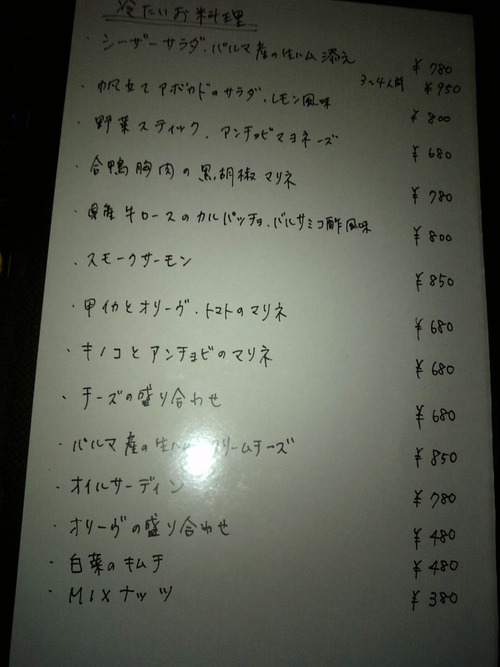 冷たいお料理
・シーザーサラダ、パルマ産の生ハム添え ¥780
3〜4人前 ¥950
・帆立てアボカドのサラダ、レモン風味 ¥800
・野菜スティック、アンチョビマヨネーズ ¥680
・合鴨胸肉の黒胡椒マリネ ¥780
・国産牛ロースのカルパッチョ、バルサミコ酢風味 ¥800
・スモークサーモン ¥850
・甲イカとオリーヴ、トマトのマリネ ¥680
・キノコとアンチョビのマリネ ¥680
・チーズの盛り合わせ ¥680
・パルマ産の生ハム クリームチーズ ¥850
・オイルサーディン ¥780
・オリーヴの盛り合わせ ¥480
・白菜のキムチ ¥480
・MIXナッツ ¥380